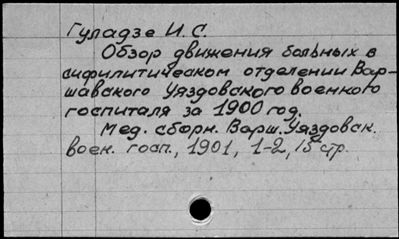 Гуладзе И. С.
Обзор движения больных в
сифилитическом отделении Вар-
шавского Уяздовского военного
госпиталя за 1900 год.
Мед. сборн. Варш. Уяздовск.
воен. госп., 1901, 1-2, 15 стр.